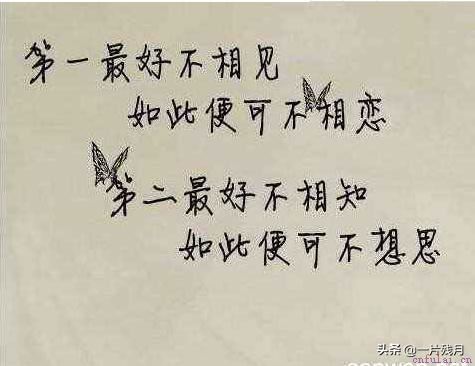 第一最好不相见
如此便可不相恋
第二最好不相知
如此便可不想思
头条 @一片残月
cnfulai.com